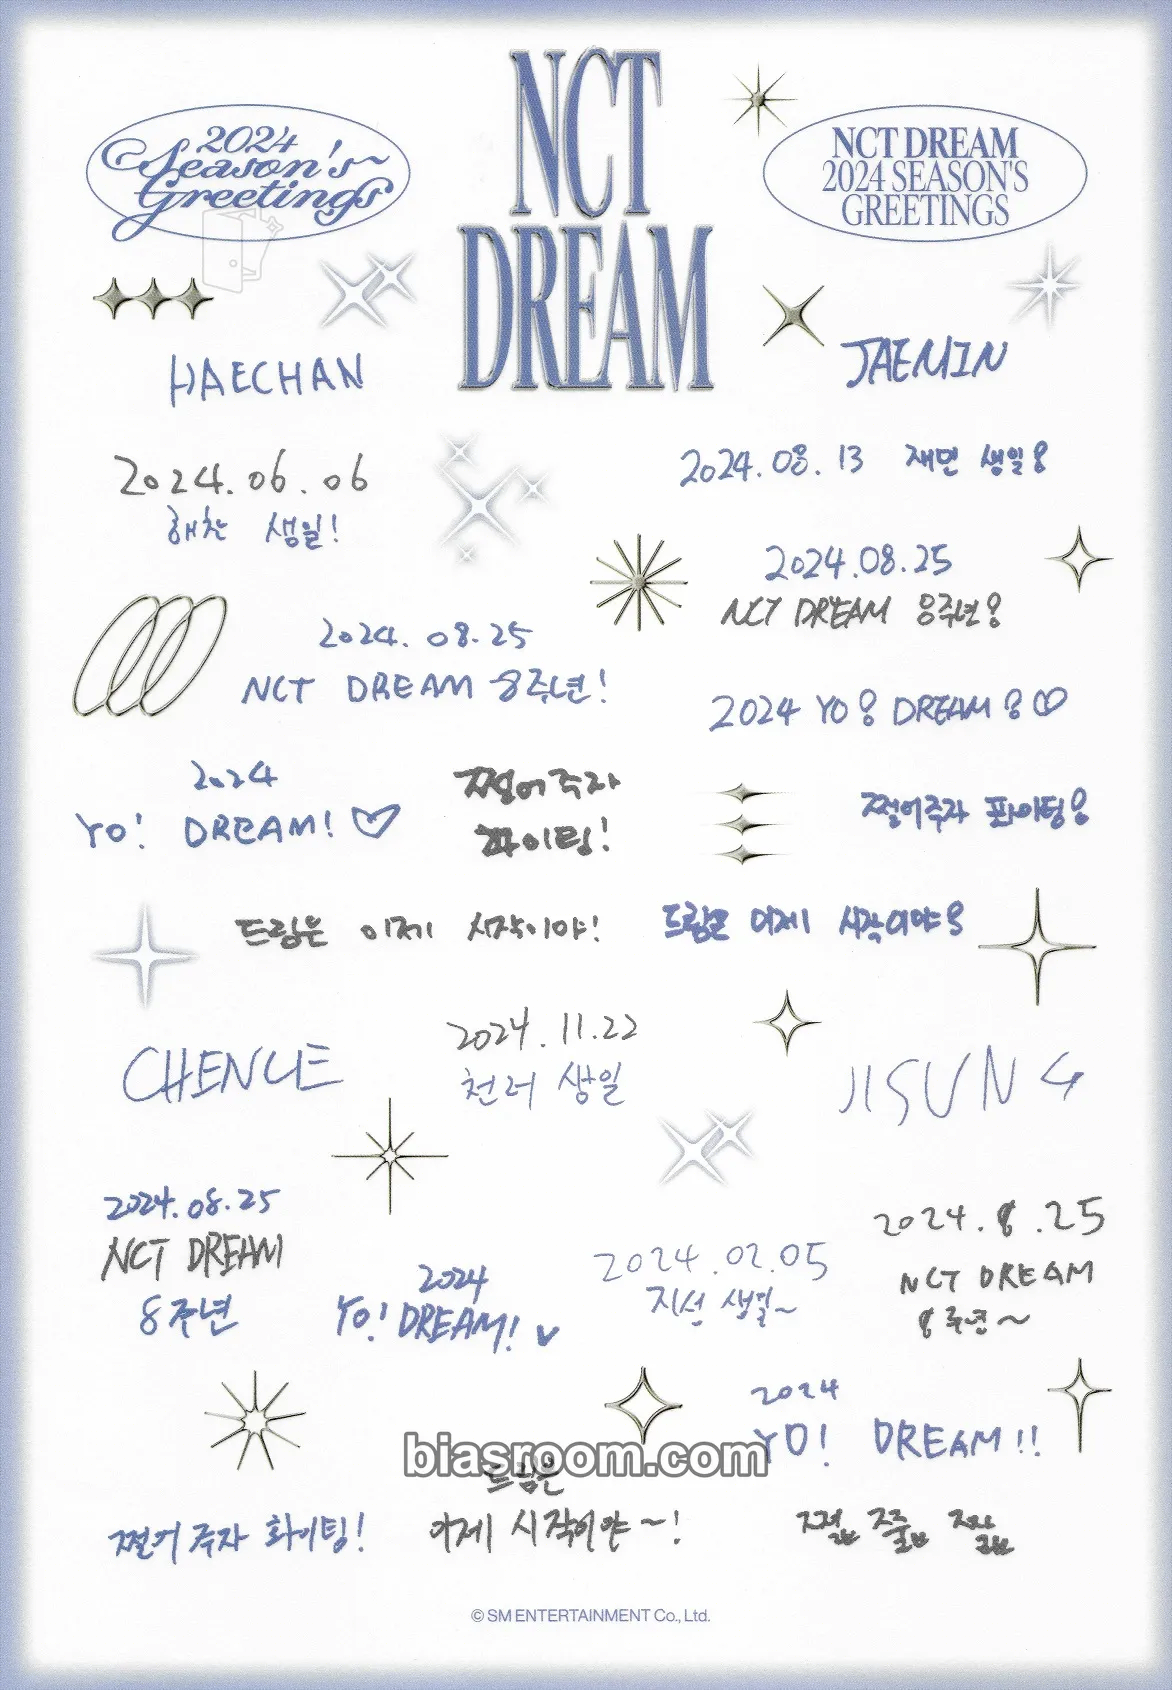 2024
Season's
Greetings
NCT
DREAM
NCT DREAM
2024 SEASON'S
GREETINGS
HAECHAN
JAEMIN
2024.06.06
해찬 생일!
2024.08.13 재민 생일!
2024.08.25
NCT DREAM 8주년!
2024.08.25
NCT DREAM 8주년!
2024 YO! DREAM!♡
2024
YO! DREAM!♡
쩔어주자
파이팅!
쩔어주자 파이팅!
드림은 이제 시작이야!
드림은 이제 시작이야!
CHENLE
2024.11.22
천러 생일
JISUNG
2024.08.25
NCT DREAM
8주년
2024
YO! DREAM! ♥
2024.02.05
지성 생일~
2024.8.25
NCT DREAM
8주년~
2024
YO! DREAM!!
biasroom.com
드림은
이제 시작이야~!
쩔어주자 화이팅!
© SM ENTERTAINMENT Co., Ltd.